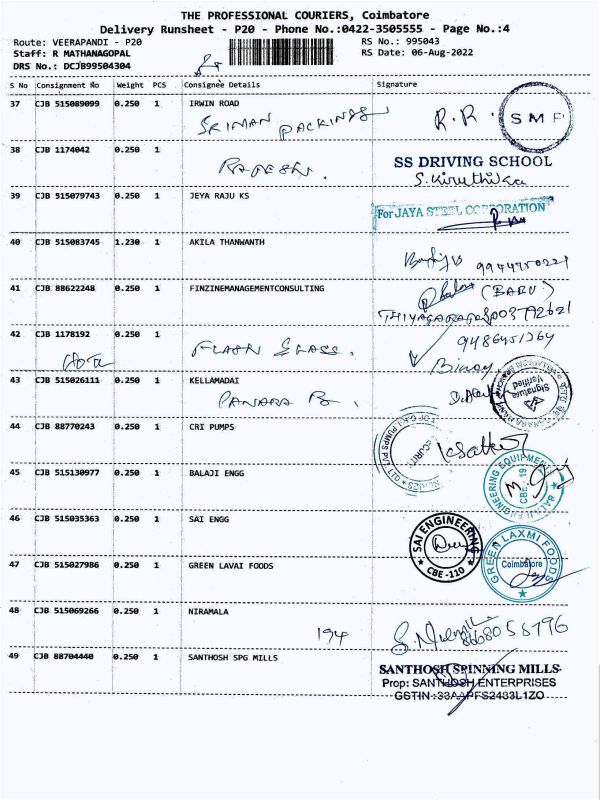 THE PROFESSIONAL COURIERS, Coimbatore
Delivery Runsheet - P20 - Phone No.:0422-3505555 - Page No.:4
Route: VEERAPANDI - P20 RS No.: 995043
Staff: R MATHANAGOPAL RS Date: 06-Aug-2022
DRS No.: DCJB99504304
S No Consignment No Weight PCS Consignee Details Signature
37 CJB 515089099 0.250 1 IRWIN ROAD
SRIMAN PACKINGS R.R. SMP
38 CJB 1174042 0.250 1
SS DRIVING SCHOOL
S.Kiruthika
39 CJB 515079743 0.250 1 JEYA RAJU KS
For JAYA STEEL CORPORATION
40 CJB 515083745 1.230 1 AKILA THANWANTH
41 CJB 88622248 0.250 1 FINZINEMANAGEMENTCONSULTING
(BABU)
42 CJB 1178192 0.250 1
FLASH GLASS. 9486451264
Binoy
43 CJB 515026111 0.250 1 KELLAMADAI
CANARA B. Signature Verified
44 CJB 88770243 0.250 1 CRI PUMPS
45 CJB 515130977 0.250 1 BALAJI ENGG
BALAJI ENGINEERING EQUIPMENT
CBE - 19
46 CJB 515035363 0.250 1 SAI ENGG
SAI ENGINEERING
CBE -110
47 CJB 515027986 0.250 1 GREEN LAVAI FOODS
GREEN LAXMI FOODS
Coimbatore
48 CJB 515069266 0.250 1 NIRAMALA
194
49 CJB 88704440 0.250 1 SANTHOSH SPG MILLS
SANTHOSH SPINNING MILLS
Prop: SANTHOSH ENTERPRISES
GSTIN :33AAPFS2483L1ZO